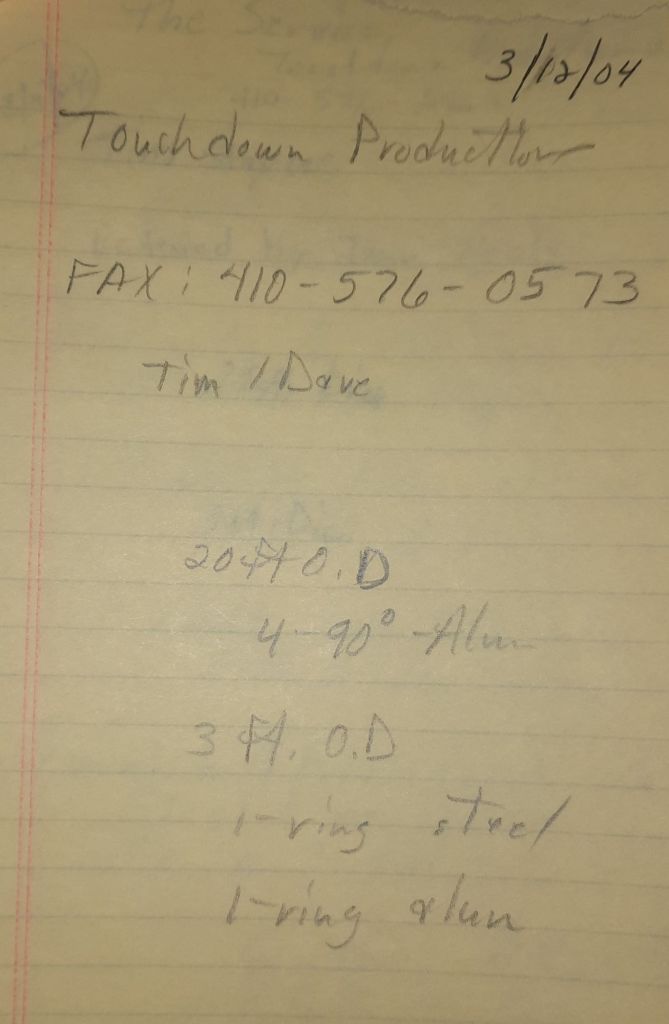 3/12/04
Touchdown Production
FAX: 410-576-0573
Tim / Dave
20 ft O.D
4-90° Alum
3 ft. O.D
1-ring steel
1-ring alum